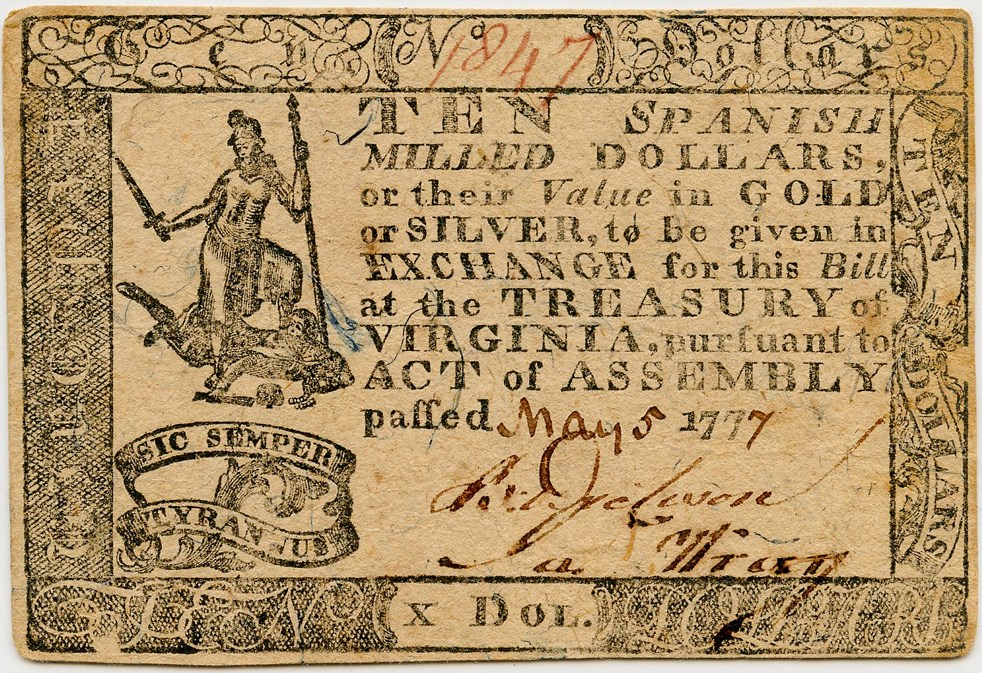 Ten (No 1847) Dollars
TEN SPANISH
MILLED DOLLARS,
or their Value in GOLD
or SILVER, to be given in
EXCHANGE for this Bill
at the TREASURY of
VIRGINIA, purſuant to
ACT of ASSEMBLY
paſſed May 5 1777
SIC SEMPER
TYRANNUS
Wray
X DOL.
TEN DOLLARS